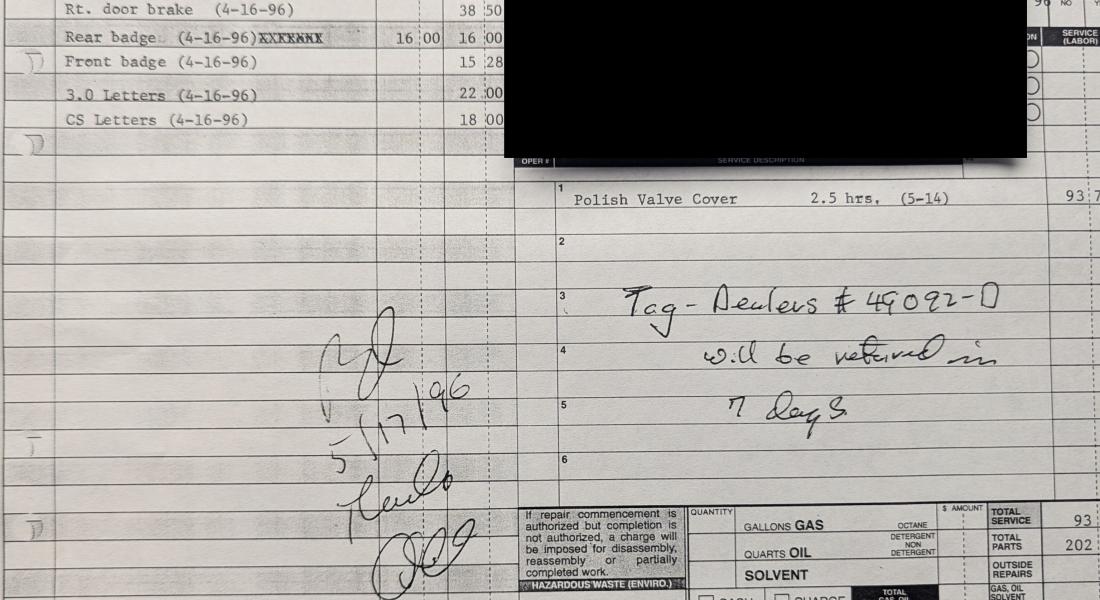 Rt. door brake (4-16-96) 38 50
Rear badge (4-16-96)XXXXXXX 16 00 16 00
Front badge (4-16-96) 15 28
3.0 Letters (4-16-96) 22 00
CS Letters (4-16-96) 18 00
NO
SERVICE
(LABOR)
OPER # SERVICE DESCRIPTION
1 Polish Valve Cover 2.5 hrs. (5-14) 93 7
2
3 Tag - Dealers # 49092-D
4 will be returned in
5 7 days
6
5/17/96
If repair commencement is
authorized but completion is
not authorized, a charge will
be imposed for disassembly,
reassembly or partially
completed work.
HAZARDOUS WASTE (ENVIRO.)
QUANTITY $ AMOUNT
GALLONS GAS OCTANE
DETERGENT
NON
DETERGENT
QUARTS OIL
SOLVENT
TOTAL
SERVICE 93
TOTAL
PARTS 202
OUTSIDE
REPAIRS
GAS, OIL
SOLVENT
CASH CHARGE TOTAL
GAS, OIL